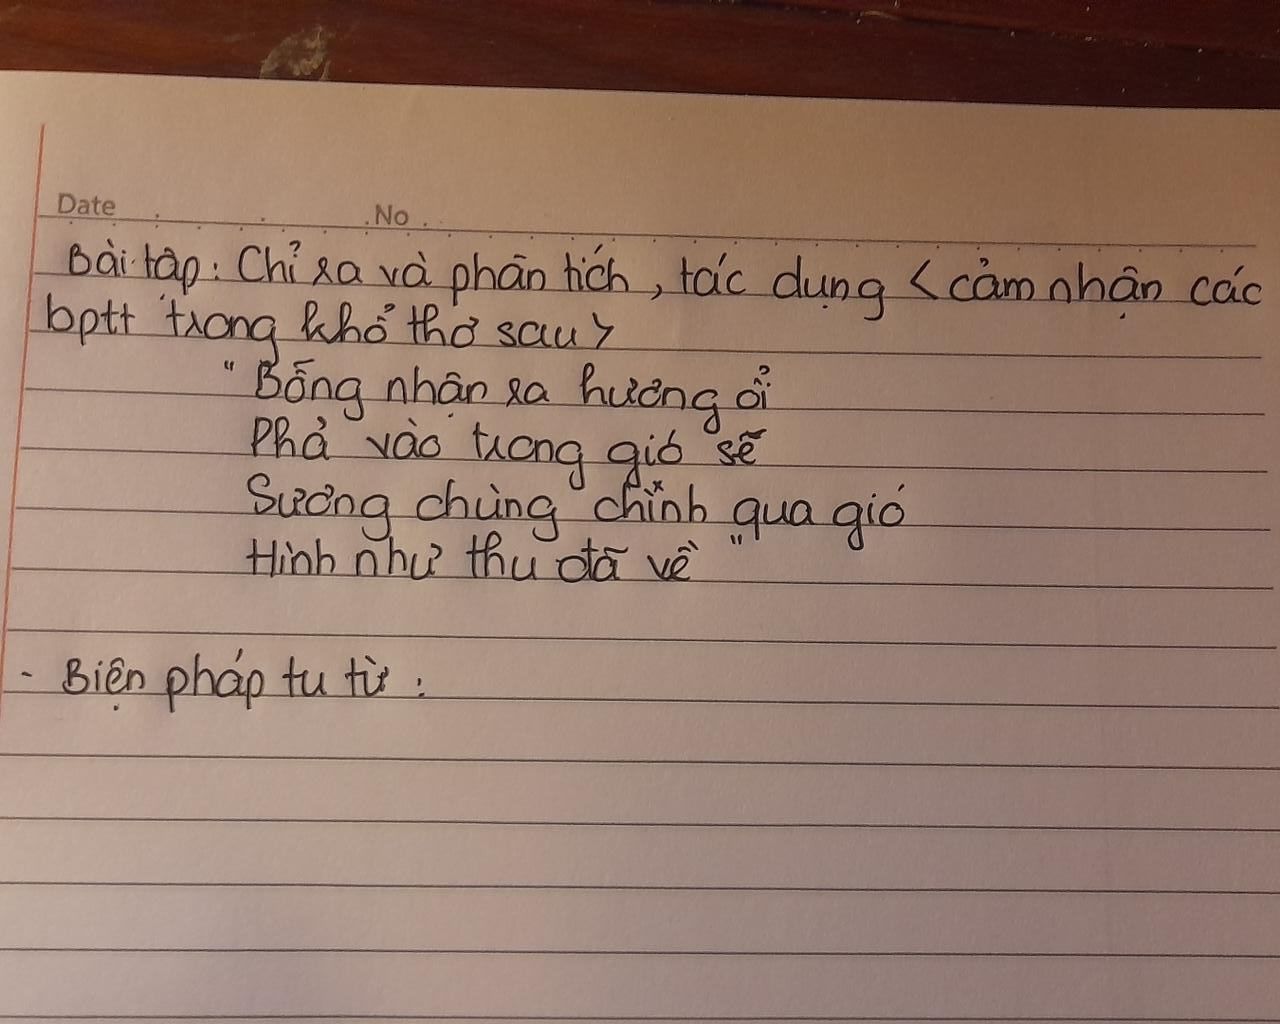 Date No
Bài tập: Chỉ ra và phân tích, tác dụng < cảm nhận các
bptt trong khổ thơ sau >
"Bỗng nhận ra hương ổi
Phả vào trong gió sẽ
Sương chùng chĩnh qua gió
Hình như thu đã về"
- Biện pháp tu từ :